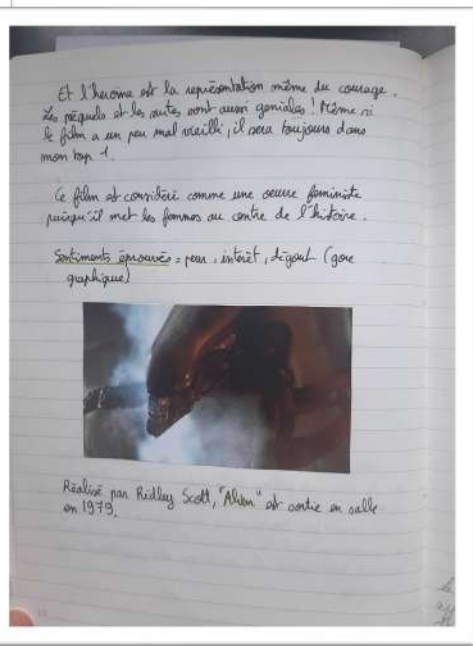 Et l'heroïne est la représentation même du courage.
Les préquels et les suites sont aussi geniales ! Même si
le film a un peu mal vieilli, il sera toujours dans
mon top 1.
Ce film est considéré comme une oeuvre feministe
puisqu'il met les femmes au centre de l'histoire.
Sentiments éprouvés = peur, interêt, dégout (gore
graphique)
Réalisé par Ridley Scott, "Alien" est sortie en salle
en 1979.